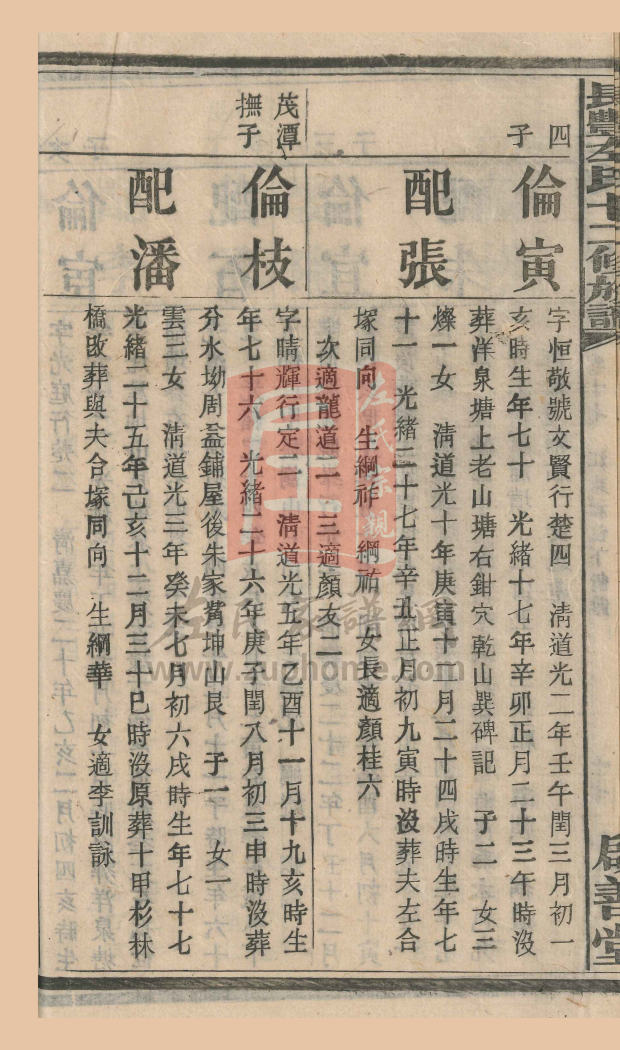 長豐左氏十二修族譜
啟善堂
四
子
倫寅
字恒敬號文賢行楚四 清道光二年壬午閏三月初一
亥時生年七十 光緒十七年辛卯正月二十三午時沒
葬洋泉塘上老山塘右鉗穴乾山巽碑記 子二 女三
配張
燦一女 清道光十年庚寅十二月二十四戌時生年七
十一 光緒二十七年辛丑正月初九寅時沒葬夫左合
塚同向 生綱祚 綱祐 女長適顏桂六
次適龍道一 三適顏友二
茂潭
撫子
倫枝
字晴輝行定二 清道光五年乙酉十一月十九亥時生
年七十六 光緒二十六年庚子閏八月初三申時沒葬
分水坳周益鋪屋後朱家嘴坤山艮 子一 女一
配潘
雲三女 清道光三年癸未七月初六戌時生年七十七
光緒二十五年己亥十二月三十巳時沒原葬十甲杉林
橋改葬與夫合塚同向 生綱華 女適李訓詠
左氏宗親
左氏家譜網
www.zuphome.com